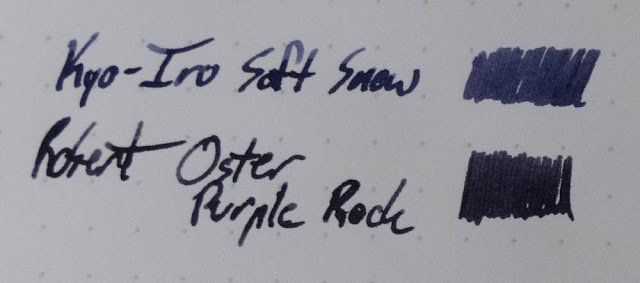 Kyo-Iro Soft Snow
Robert Oster
Purple Rock